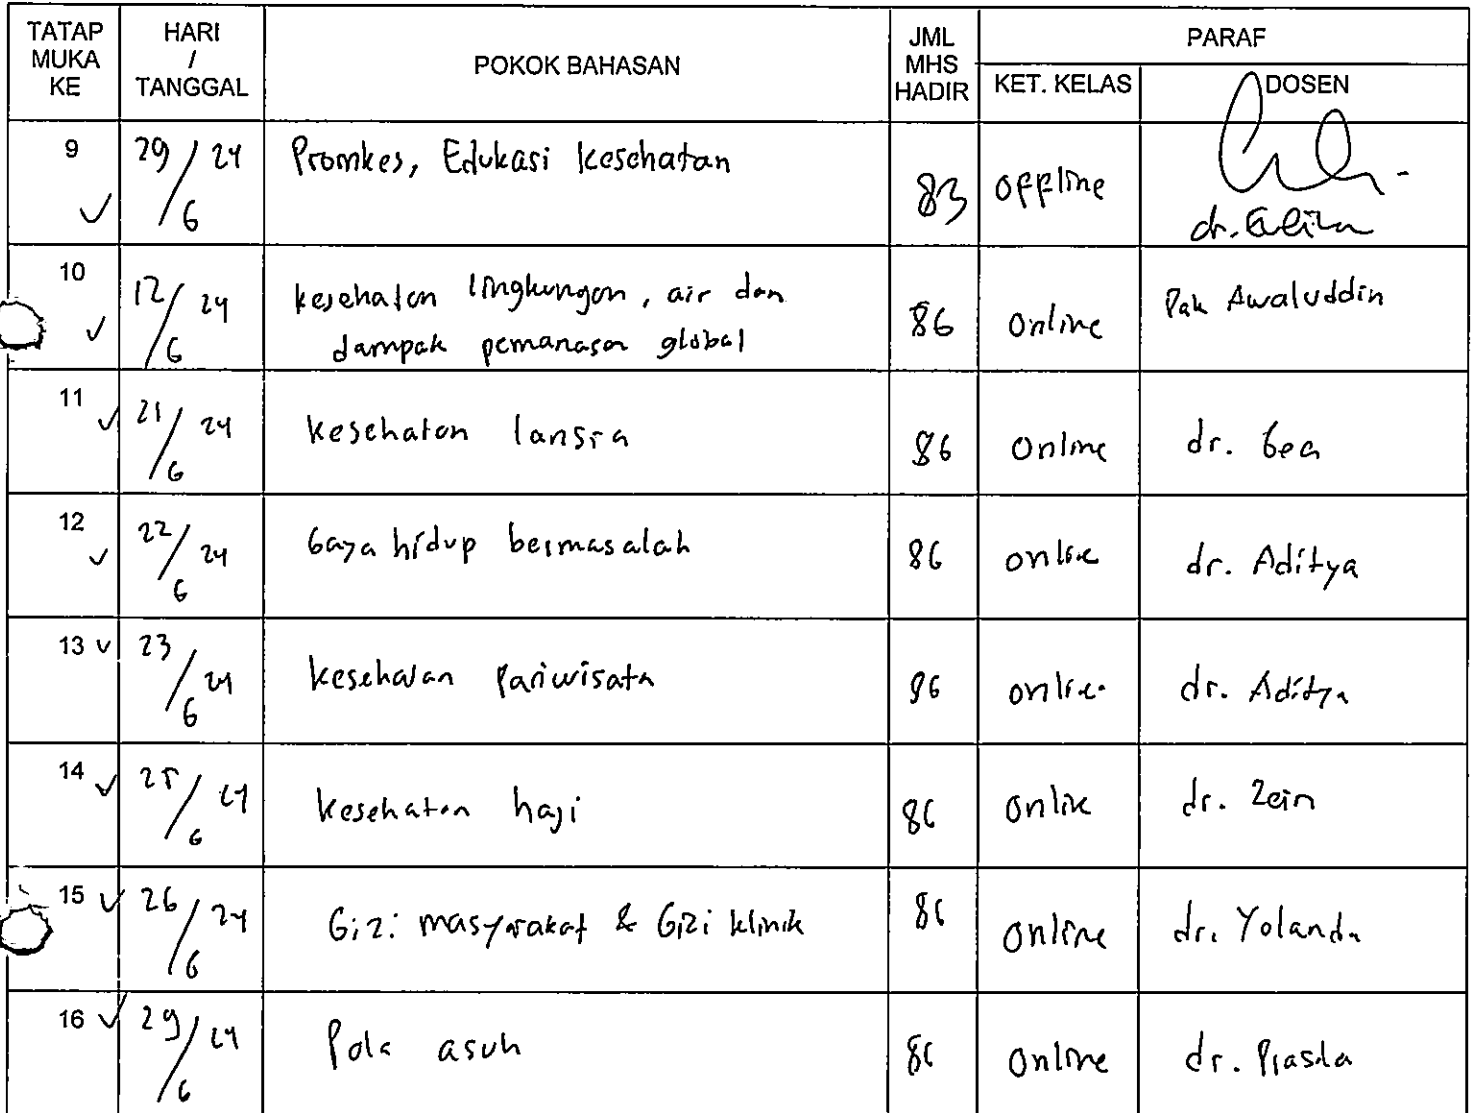 TATAP MUKA KE HARI / TANGGAL POKOK BAHASAN JML MHS HADIR PARAF
KET. KELAS DOSEN
9 29/6 24 Promkes, Edukasi kesehatan 83 offline
dr.
10 12/6 24 kesehatan lingkungan, air dan 86 Online Pak Awaluddin
dampak pemanasan global
11 21/6 24 kesehatan lansia 86 Online dr. Gea
12 22/6 24 Gaya hidup bermasalah 86 online dr. Aditya
13 23/6 24 kesehatan pariwisata 86 online dr. Aditya
14 25/6 24 kesehatan haji 86 Online dr. Zein
15 26/6 24 Gizi masyarakat & Gizi klinik 86 Online dr. Yolanda
16 29/6 24 Pola asuh 86 Online dr.